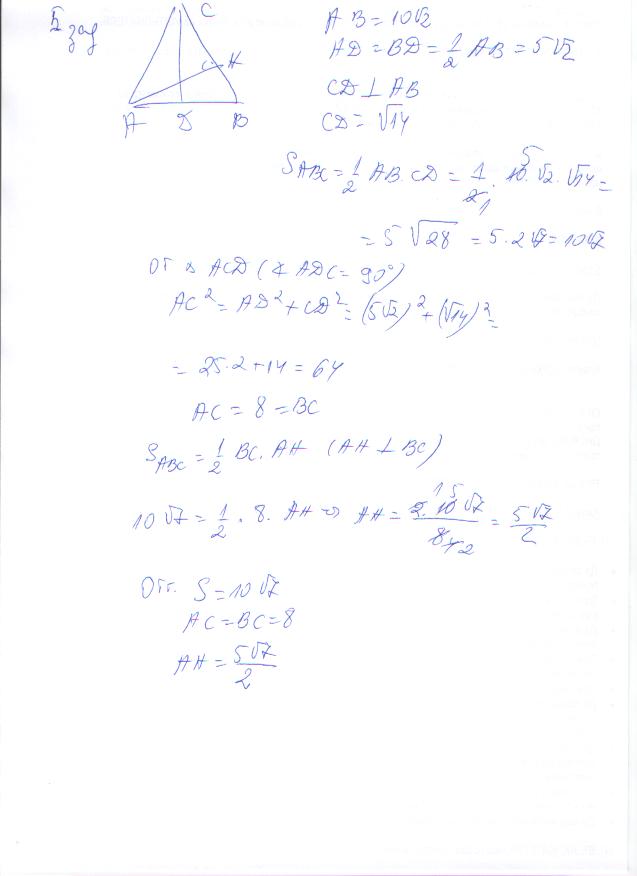 5 зад
C
H
A D B
AB = 10√2
AD = BD = 1/2 AB = 5√2
CD ⊥ AB
CD = √14
S_ABC = 1/2 AB.CD = 1/2 . 10.√2.√14 =
= 5√28 = 5.2√7 = 10√7
От △ ACD (∢ ADC = 90°)
AC² = AD² + CD² = (5√2)² + (√14)² =
= 25.2 + 14 = 64
AC = 8 = BC
S_ABC = 1/2 BC. AH (AH ⊥ BC)
10√7 = 1/2 . 8. AH => AH = 2.10√7/8 = 5√7/2
Отг. S = 10√7
AC = BC = 8
AH = 5√7/2